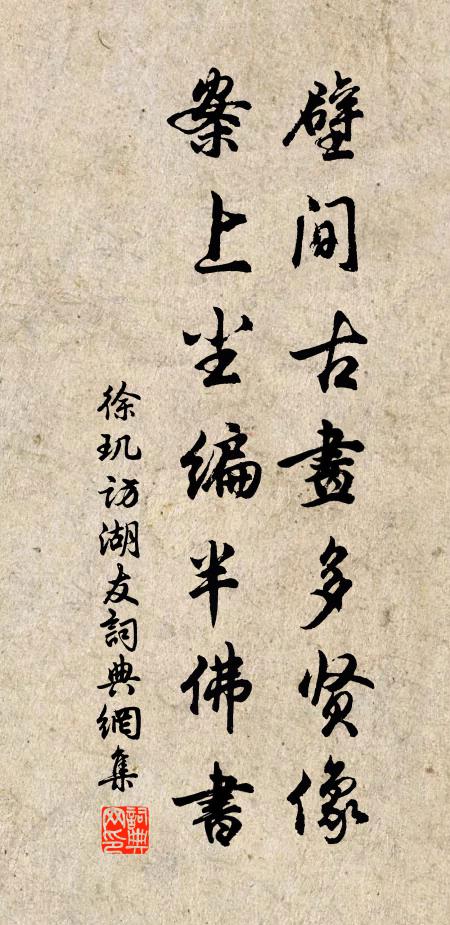 壁间古畫多贤像
案上尘编半佛書
徐玑访湖友詞典網集
詞典網印